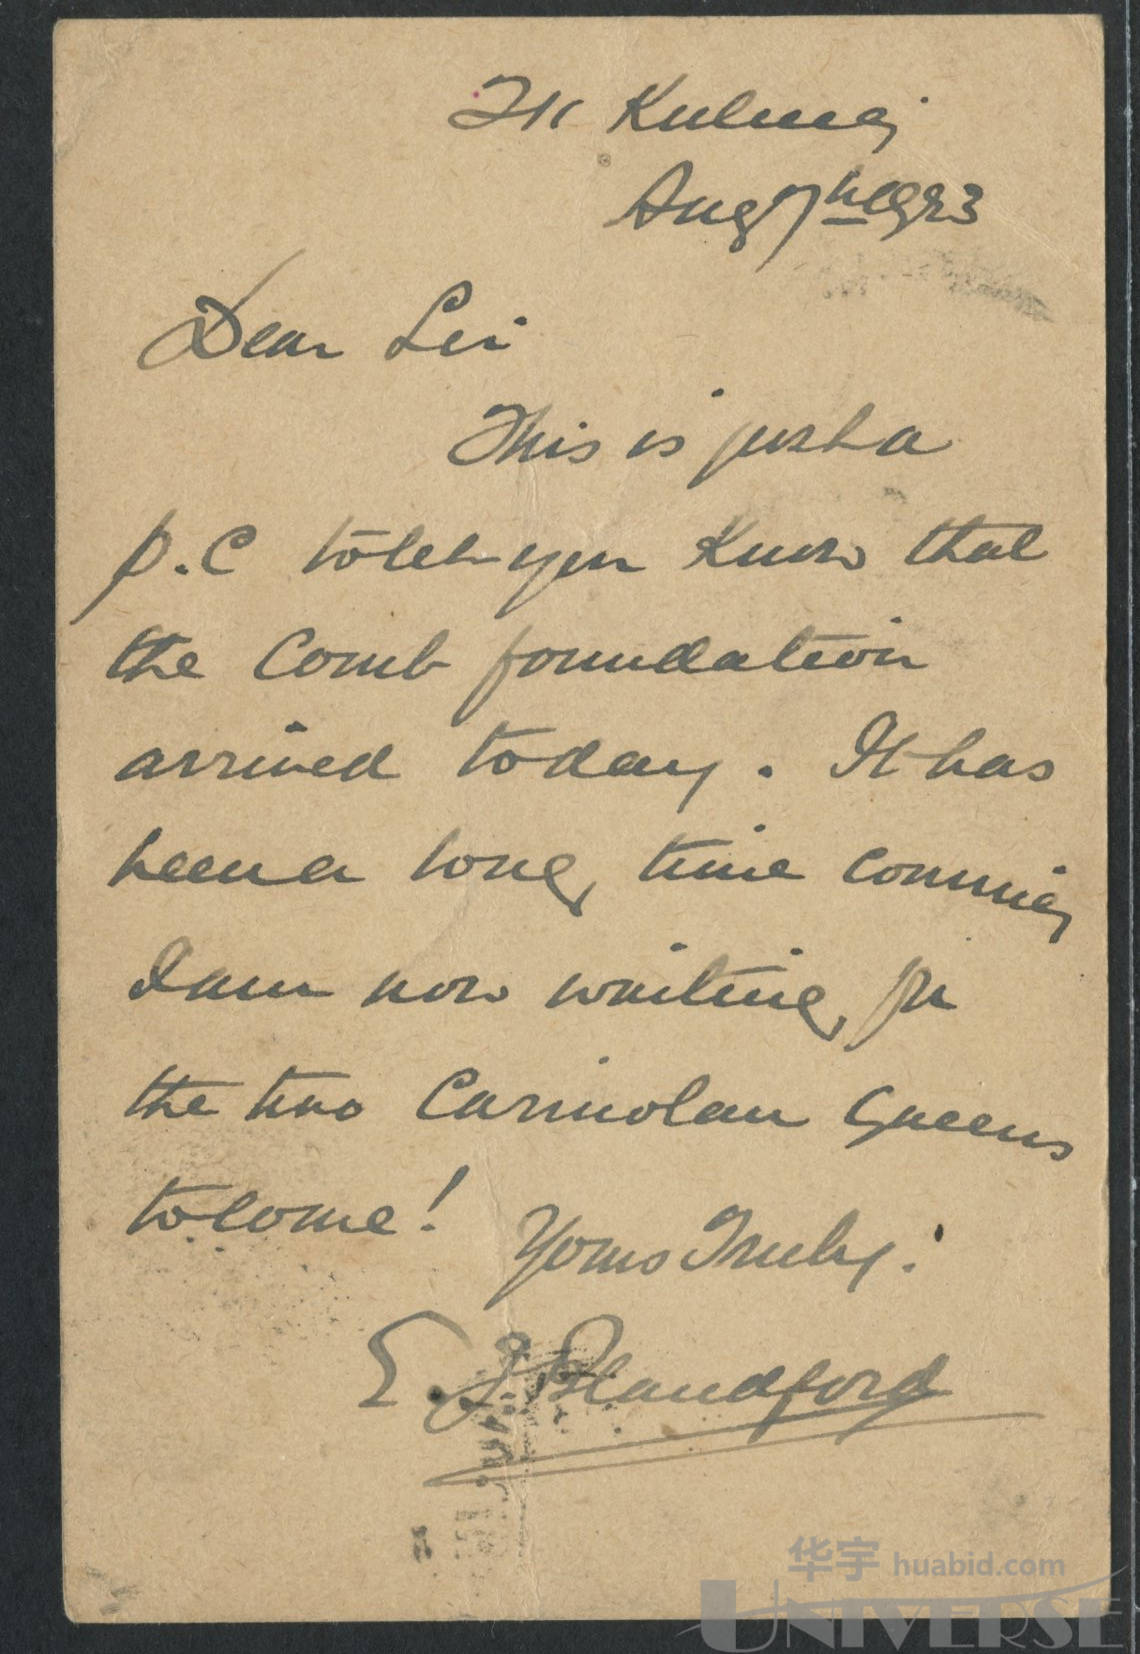 Kuling
Aug 7th 1923
Dear Sir
This is just a
P.C to let you know that
the Comb foundation
arrived today. It has
been a long time comming
I am now waiting for
the two Carniolan Queens
to come!
Yours Truly:
E. J. Blandford
华宇 huabid.com
UNIVERSE